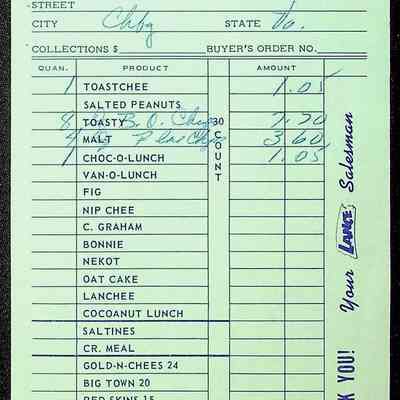 STREET
CITY Chbg STATE Va.
COLLECTIONS $ BUYER'S ORDER NO.
QUAN. PRODUCT AMOUNT
1 TOASTCHEE 1.05
SALTED PEANUTS
8 TOASTY B.O. Chips 30 7.20
4 MALT Plain Chips 3.60
1 CHOC-O-LUNCH 1.05
VAN-O-LUNCH
FIG
NIP CHEE
C. GRAHAM
BONNIE
NEKOT
OAT CAKE
LANCHEE
COCOANUT LUNCH
SALTINES
CR. MEAL
GOLD-N-CHEES 24
BIG TOWN 20
RED SKINS 15
COUNT
K YOU! Your LANCE Salesman